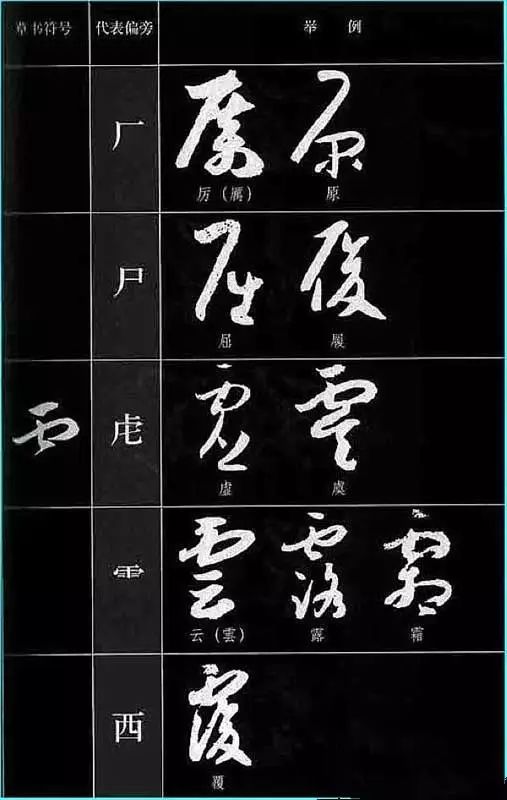 草书符号 代表偏旁 举例
厂 厉（厲） 原
尸 屈 履
虍 虚 虞
⻗ 云（雲） 露 霜
西 覆